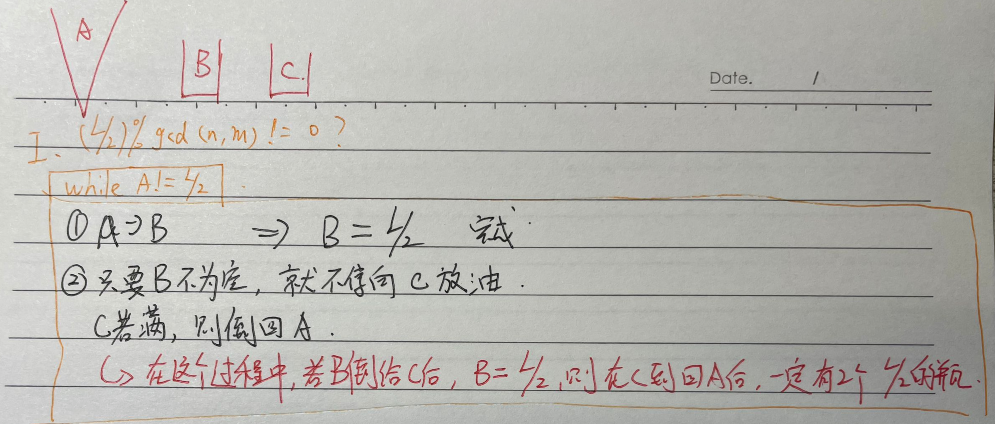 A
B
C
Date. /
I. (L/2) % gcd(n, m) != 0 ?
while A != L/2
① A → B => B = L/2 完成.
② 只要B不为空, 就不停向C放油.
C若满, 则倒回A.
↳ 在这个过程中, 若B倒给C后, B = L/2, 则在C倒回A后, 一定有2个 L/2的瓶.